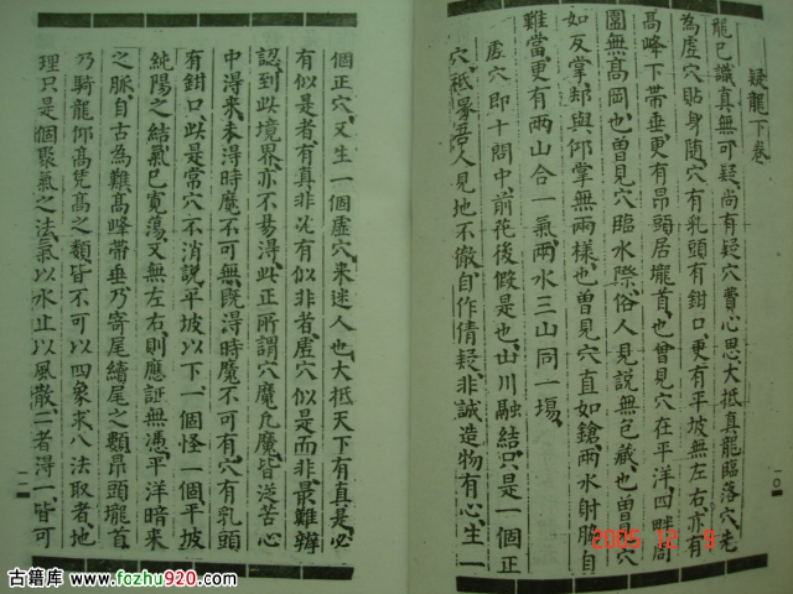 疑龍下卷
龍已識真無可疑、尚有疑穴費心思、大抵真龍臨落穴、先
為虛穴貼身隨、穴有乳頭有鉗口、更有平坡無左右、亦有
高峰下帶垂、更有昂頭居壠首、也曾見穴在平洋、四畔周
圍無高岡、也曾見穴臨水際、俗人見說無包藏、也曾見穴
如反掌、却與仰掌無兩樣、也曾見穴直如鎗、兩水射脇自
難當、更有兩山合一氣、兩水三山同一塲、
虛穴即十問中前花後假是也、山川融結、只是一個正
穴、祗緣吾人見地不徹、自作倩疑、非誠造物有心、生一
一〇
個正穴、又生一個虛穴來迷人也、大抵天下有真是、必
有似是者、有真非、必有似非者、虛穴似是而非、最難辨
認、到此境界、亦不易得、此正所謂穴魔、凡魔、皆從苦心
中得來、未得時魔不可無、既得時魔不可有、穴有乳頭
有鉗口、此是常穴、不消說、平坡以下、一個怪一個、平坡
純陽之結、氣已寬蕩、又無左右、則應証無憑、平洋暗來
之脈、自古為難、高峰帶垂、乃寄尾續尾之類、昂頭壠首
乃騎龍仰高凭高之類、皆不可以四象求八法取者、地
理只是個聚氣之法、氣以水止、以風散、二者得一、皆可
一一
2005 12 9
古籍库 / www.fozhu920.com